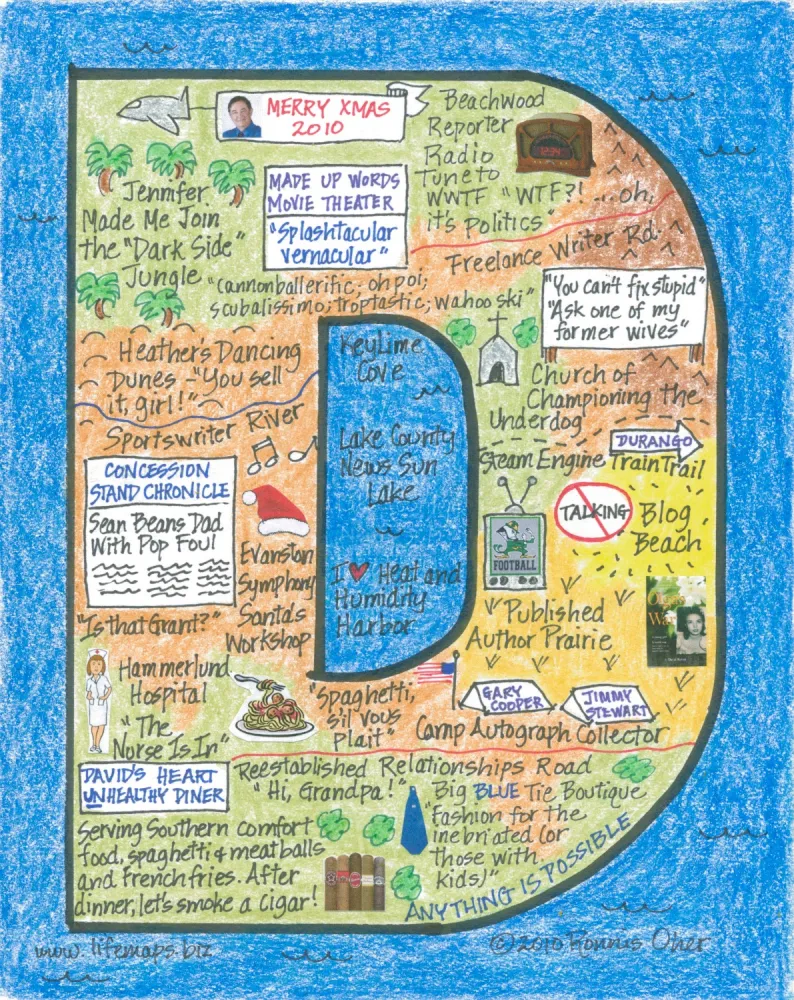 MERRY XMAS
2010
Beachwood
Reporter
Radio
Tune to
WWTF "WTF?! ... oh,
it's politics"
Jennifer
Made Me Join
the "Dark Side"
Jungle
MADE UP WORDS
MOVIE THEATER
"Splashtacular
vernacular"
"cannonballerific; oh poi;
scubalissimo; troptastic; wahooski"
Freelance Writer Rd.
"You can't fix stupid"
"Ask one of my
former wives"
Heather's Dancing
Dunes - "You sell
it, girl!"
Sportswriter River
KeyLime
Cove
Lake County
News Sun
Lake
I ❤ Heat and
Humidity
Harbor
Church of
Championing the
Underdog
DURANGO
Steam Engine Train Trail
CONCESSION
STAND CHRONICLE
Sean Beans Dad
With Pop Foul
"Is that Grant?"
Evanston
Symphony
Santa's
Workshop
FOOTBALL
TALKING
Blog
Beach
Published
Author Prairie
Hammerlund
Hospital
"The
Nurse Is In"
"Spaghetti,
s'il vous
Plait"
GARY
COOPER
JIMMY
STEWART
Camp Autograph Collector
Reestablished Relationships Road
"Hi, Grandpa!"
DAVID'S HEART
UNHEALTHY DINER
Serving Southern comfort
food, spaghetti & meatballs
and french fries. After
dinner, let's smoke a cigar!
Big BLUE Tie Boutique
"Fashion for the
inebriated (or
those with
kids)"
ANYTHING IS POSSIBLE
www.lifemaps.biz
©2010 Ronnis Oher